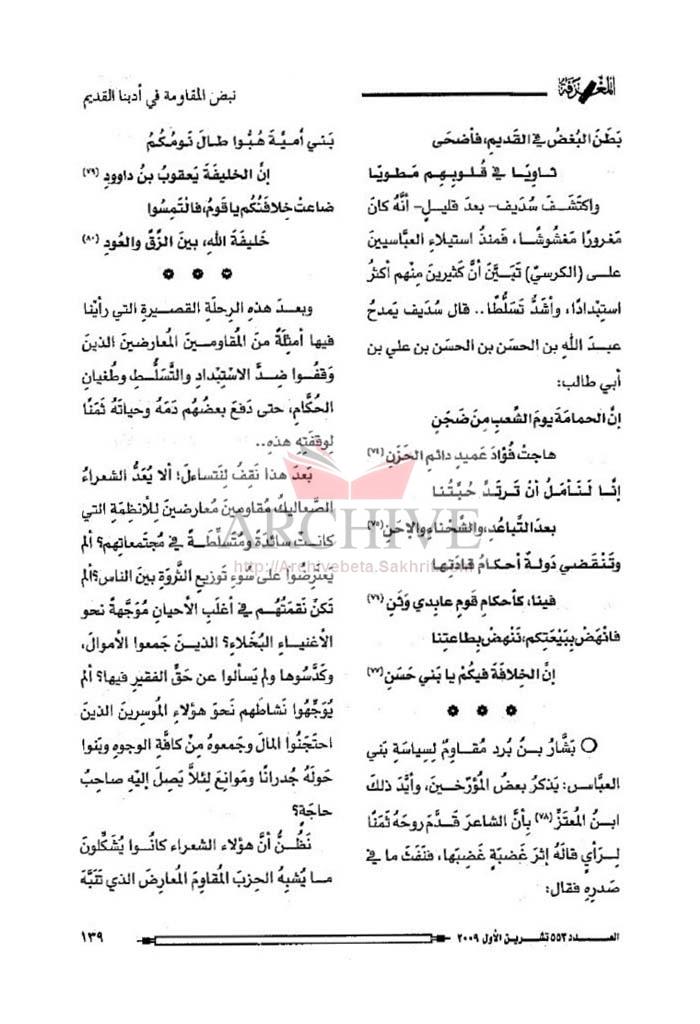 المعرفة
نبض المقاومة في أدبنا القديم
بَطَنَ البُغضُ في القديمِ، فأضحَى
ثاوِيًا في قُلوبِهِم مَطوِيّا
واكتَشَفَ سُدَيف- بعدَ قليلٍ- أنَّهُ كانَ
مَغرورًا مَغشُوشًا، فَمنذُ استيلاءِ العبَّاسيينَ
على (الكرسيِّ) تَبَيَّنَ أنَّ كَثيرينَ مِنهُم أكثرُ
استِبدادًا، وأشَدُّ تَسَلُّطًا.. قال سُدَيف يَمدحُ
عبدَ اللهِ بن الحسَن بن الحسَن بن علي بن
أبي طالب:
إنَّ الحمامَةَ يومَ الشِّعبِ مِنَ ضَجَنٍ
هاجتْ فُؤادَ عَميدٍ دائمِ الحَزَنِ (٧٤)
إنَّا لَنَأمَلُ أنْ تَرتَدَّ حُبَّتُنا
بعدَ التَّباعُدِ، والشَّحناءِ والإحَنِ (٧٥)
وتَنْقَضي دَولةٌ أحكامُ قادَتِها
فينا، كأحكامِ قَومٍ عابِدي وَثَنِ (٧٦)
فانهَضْ بِبَيْعَتِكم، نَنْهَضْ بِطاعَتِنا
إنَّ الخِلافَةَ فيكُمْ يا بَني حَسَنِ (٧٧)
* * *
○ بَشَّارُ بنُ بُرد مُقاوِمٌ لِسياسَةِ بَني
العبَّاس: يَذكرُ بعضُ المُؤرِّخينَ، وأيَّدَ ذلكَ
ابنُ المُعتَزِّ (٧٨) بأنَّ الشاعرَ قَدَّمَ روحَهُ ثَمَنًا
لِرأيٍ قالَهُ إثرَ غَضبَةٍ غَضِبَها، فنَفَثَ ما في
صَدرِهِ فقال:
بَني أُميَّةَ هُبُّوا طالَ نَومُكُمُ
إنَّ الخليفَةَ يَعقوبُ بنُ داوودِ (٧٩)
ضاعتْ خِلافَتُكُم يا قَومُ، فالتَمِسُوا
خَليفَةَ اللهِ، بينَ الزِّقِّ والعُودِ (٨٠)
* * *
وبعدَ هذهِ الرِحلَةِ القصيرةِ التي رأيْنا
فيها أمثِلَةً منَ المُقاومينَ المُعارضينَ الذينَ
وَقفُوا ضِدَّ الاسْتِبدادِ والتَّسَلُّطِ وطُغيانِ
الحُكَّامِ، حتى دَفعَ بعضُهُم دَمَهُ وحياتَهُ ثَمَنًا
لِوقفَتِهِ هذهِ..
بَعدَ هذا نَقِفُ لِنَتساءلَ؛ ألا يُعَدُّ الشعراءُ
الصَّعاليكُ مُقاومينَ مُعارضينَ لِلأنظِمَةِ التي
كانت سائدَةً ومُتَسلِّطَةً في مُجتَمعاتِهم؟ ألم
يَعتَرِضُوا على سُوءِ تَوزيعِ الثَّروَةِ بينَ الناسِ؟ ألم
تَكنْ نَقمَتُهُم في أغلَبِ الأحيانِ مُوَجَّهةً نحوَ
الأغنياءِ البُخَلاءِ؟ الذينَ جَمعوا الأموالَ،
وكَدَّسُوها ولم يَسألوا عن حَقِّ الفقيرِ فيها؟ ألم
يُوَجِّهُوا نَشاطَهم نَحوَ هؤلاءِ المُوسِرينَ الذينَ
احتَجَنُوا المالَ وجَمعوهُ مِنْ كافَّةِ الوجوهِ وبَنَوا
حَولَهُ جُدرانًا ومَوانِعَ لِئلاَّ يَصِلَ إليْهِ صاحِبُ
حاجَةٍ؟
نَظُنُّ أنَّ هؤلاءِ الشعراءَ كانُوا يُشَكِّلونَ
ما يُشبِهُ الحِزبَ المُقاوِمَ المُعارضَ الذي تَنَبَّهَ
العدد ٥٥٣ تشرين الأول ٢٠٠٩
١٣٩
ARCHIVE
http://Archivebeta.Sakhrit.com